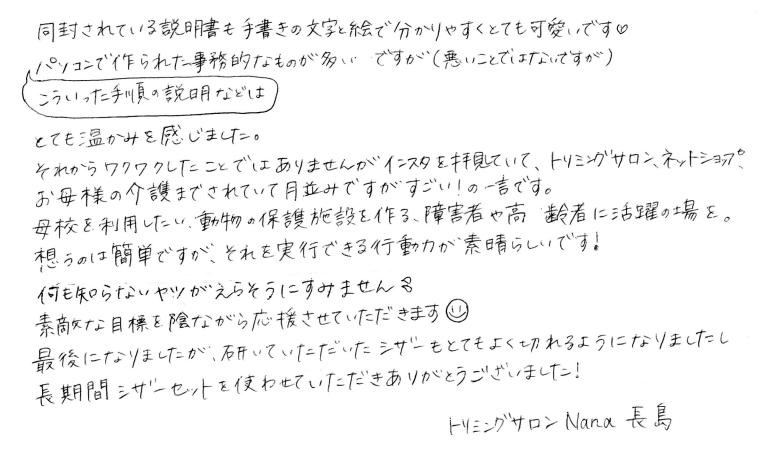 同封されている説明書も手書きの文字と絵で分かりやすくとても可愛いです♡
パソコンで作られた事務的なものが多い ですが(悪いことではないですが)
こういった手順の説明などは
とても温かみを感じました。
それからワクワクしたことではありませんがインスタを拝見していて、トリミングサロン、ネットショップ、
お母様の介護までされていて月並みですがすごい!の一言です。
母校を利用したい、動物の保護施設を作る、障害者や高 齢者に活躍の場を。
想うのは簡単ですが、それを実行できる行動力が素晴らしいです!
何も知らないヤツがえらそうにすみません
素敵な目標を陰ながら応援させていただきます☺
最後になりましたが、研いでいただいたシザーもとてもよく切れるようになりましたし
長期間シザーセットを使わせていただきありがとうございました!
トリミングサロン Nana 長島